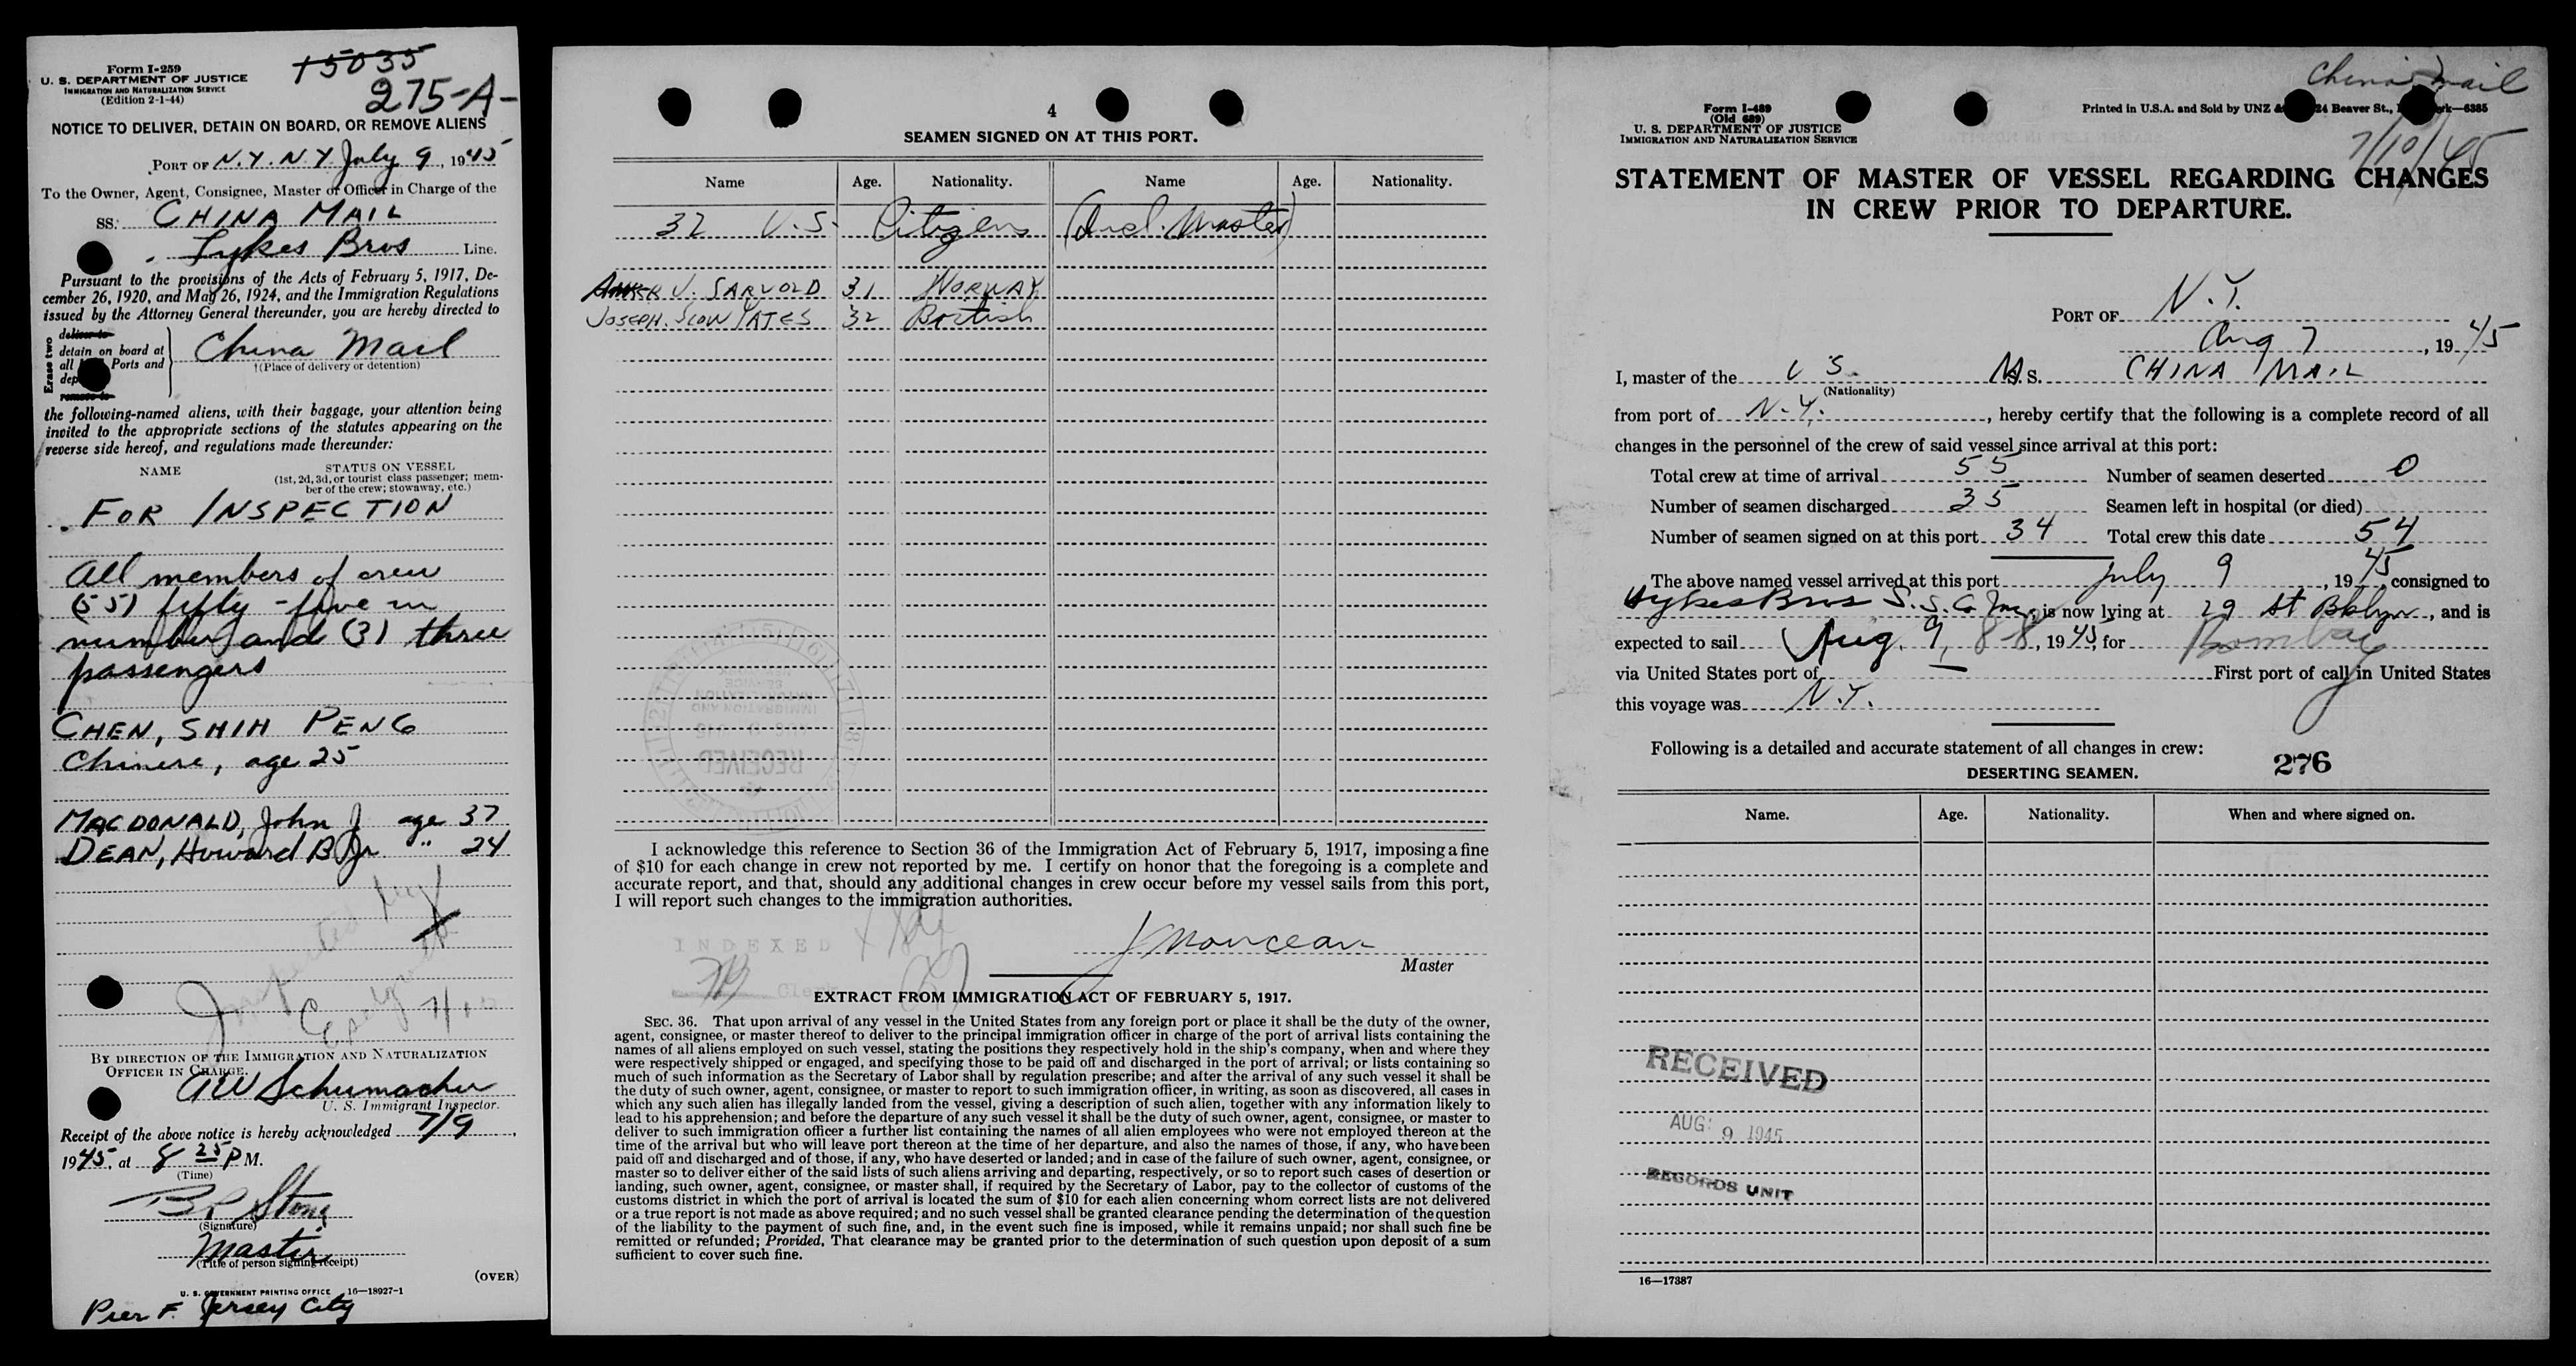 15035
275-A-
Form I-259
U. S. DEPARTMENT OF JUSTICE
IMMIGRATION AND NATURALIZATION SERVICE
(Edition 2-1-44)
NOTICE TO DELIVER, DETAIN ON BOARD, OR REMOVE ALIENS
PORT OF N.Y. N.Y. July 9, 1945
To the Owner, Agent, Consignee, Master or Officer in Charge of the
SS. CHINA MAIL
Lykes Bros Line.
Pursuant to the provisions of the Acts of February 5, 1917, De-
cember 26, 1920, and May 26, 1924, and the Immigration Regulations
issued by the Attorney General thereunder, you are hereby directed to
Erase two
deliver to
detain on board at
all Ports and
China Mail
†(Place of delivery or detention)
remove to
the following-named aliens, with their baggage, your attention being
invited to the appropriate sections of the statutes appearing on the
reverse side hereof, and regulations made thereunder:
NAME
STATUS ON VESSEL
(1st, 2d, 3d, or tourist class passenger; mem-
ber of the crew; stowaway, etc.)
FOR INSPECTION
All members of crew
(55) fifty-five in
number and (3) three
passengers
CHEN, SHIH PENG
Chinese, age 25
MACDONALD, John J age 37
DEAN, Howard B Jr " 24
7/10
BY DIRECTION OF THE IMMIGRATION AND NATURALIZATION
OFFICER IN CHARGE.
AW Schumacher
U. S. Immigrant Inspector.
Receipt of the above notice is hereby acknowledged 7/9,
1945, at 8 25 P M.
(Time)
B P Stone
(Signature)
Master
(Title of person signing receipt)
(OVER)
U. S. GOVERNMENT PRINTING OFFICE 16—18927-1
Pier F. Jersey City
4
SEAMEN SIGNED ON AT THIS PORT.
Name Age. Nationality. Name Age. Nationality.
32 U.S. Citizens (Incl. Master)
J. SARVOLD 31 NORWAY
JOSEPH SLOW YATES 32 British
RECEIVED
I acknowledge this reference to Section 36 of the Immigration Act of February 5, 1917, imposing a fine
of $10 for each change in crew not reported by me. I certify on honor that the foregoing is a complete and
accurate report, and that, should any additional changes in crew occur before my vessel sails from this port,
I will report such changes to the immigration authorities.
INDEXED
Master
Clerk
EXTRACT FROM IMMIGRATION ACT OF FEBRUARY 5, 1917.
SEC. 36. That upon arrival of any vessel in the United States from any foreign port or place it shall be the duty of the owner,
agent, consignee, or master thereof to deliver to the principal immigration officer in charge of the port of arrival lists containing the
names of all aliens employed on such vessel, stating the positions they respectively hold in the ship's company, when and where they
were respectively shipped or engaged, and specifying those to be paid off and discharged in the port of arrival; or lists containing so
much of such information as the Secretary of Labor shall by regulation prescribe; and after the arrival of any such vessel it shall be
the duty of such owner, agent, consignee, or master to report to such immigration officer, in writing, as soon as discovered, all cases in
which any such alien has illegally landed from the vessel, giving a description of such alien, together with any information likely to
lead to his apprehension; and before the departure of any such vessel it shall be the duty of such owner, agent, consignee, or master to
deliver to such immigration officer a further list containing the names of all alien employees who were not employed thereon at the
time of the arrival but who will leave port thereon at the time of her departure, and also the names of those, if any, who have been
paid off and discharged and of those, if any, who have deserted or landed; and in case of the failure of such owner, agent, consignee, or
master so to deliver either of the said lists of such aliens arriving and departing, respectively, or so to report such cases of desertion or
landing, such owner, agent, consignee, or master shall, if required by the Secretary of Labor, pay to the collector of customs of the
customs district in which the port of arrival is located the sum of $10 for each alien concerning whom correct lists are not delivered
or a true report is not made as above required; and no such vessel shall be granted clearance pending the determination of the question
of the liability to the payment of such fine, and, in the event such fine is imposed, while it remains unpaid; nor shall such fine be
remitted or refunded; Provided, That clearance may be granted prior to the determination of such question upon deposit of a sum
sufficient to cover such fine.
China Mail
7/10/45
Form I-489
(Old 689)
U. S. DEPARTMENT OF JUSTICE
IMMIGRATION AND NATURALIZATION SERVICE
Printed in U.S.A. and Sold by UNZ & 24 Beaver St., —6385
STATEMENT OF MASTER OF VESSEL REGARDING CHANGES
IN CREW PRIOR TO DEPARTURE.
PORT OF N.Y.
Aug 7, 1945
I, master of the U S. M.S. CHINA MAIL
(Nationality)
from port of N.Y., hereby certify that the following is a complete record of all
changes in the personnel of the crew of said vessel since arrival at this port:
Total crew at time of arrival 55 Number of seamen deserted 0
Number of seamen discharged 35 Seamen left in hospital (or died)
Number of seamen signed on at this port 34 Total crew this date 54
The above named vessel arrived at this port July 9, 1945, consigned to
Lykes Bros S.S. Co Inc, is now lying at 29 St Bklyn, and is
expected to sail Aug. 9, 8-8, 1945, for Bombay
via United States port of First port of call in United States
this voyage was N.Y.
Following is a detailed and accurate statement of all changes in crew:
DESERTING SEAMEN.
276
Name. Age. Nationality. When and where signed on.
RECEIVED
AUG 9 1945
RECORDS UNIT
16—17387